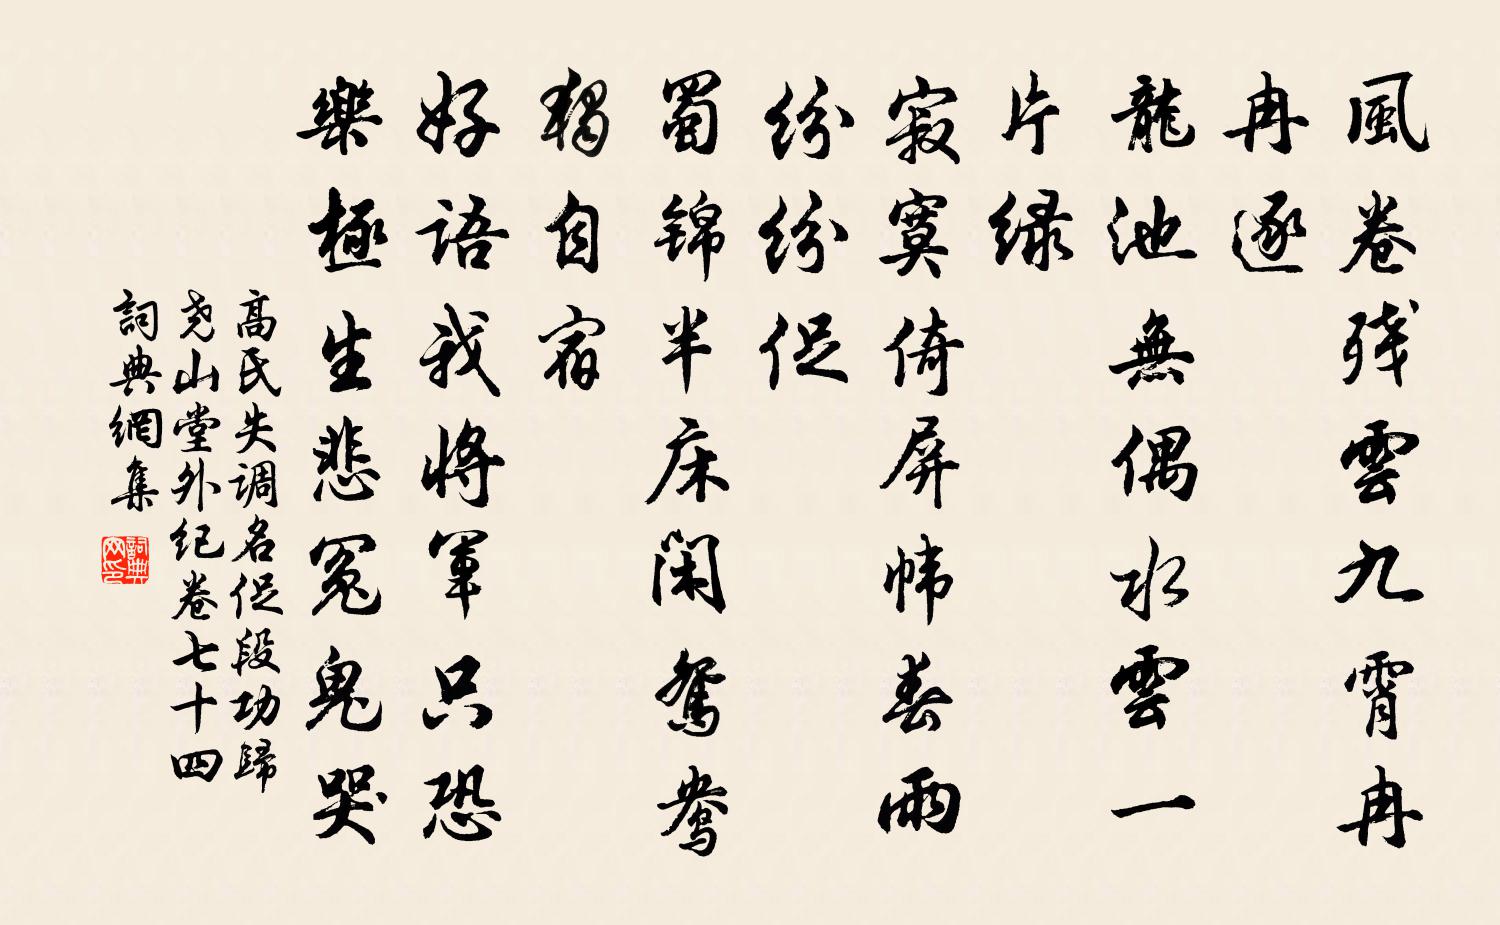 風卷残雲九霄冉
冉逐
龍池無偶水雲一
片緑
寂寞倚屏幃春雨
紛紛促
蜀锦半床閑鴛鴦
獨自宿
好語我將軍只恐
樂極生悲冤鬼哭
高氏失调名促段功歸
尧山堂外紀卷七十四
詞典網集
詞典網印